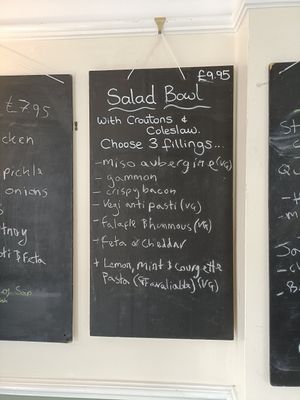 £7.95
cken
pickle
onions
tney
ti & Feta
£9.95
Salad Bowl
With Croutons &
Coleslaw.
Choose 3 fillings...
- miso aubergine (VG)
- gammon
- crispy bacon
- Vegi antipasti (VG)
- Falafle & hummous (VG)
- Feta or Cheddar
+ Lemon, Mint & Courgette
Pasta (GF available) (VG)
St